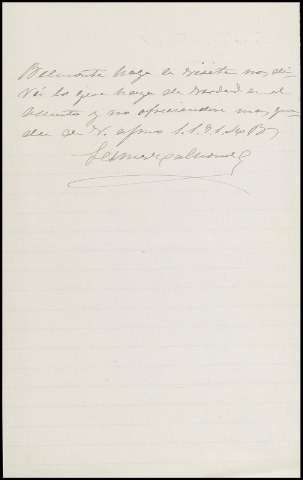 Belmonte haga la visita nos di-
rá lo que haya de verdad en el
asunto y no ofreciendose mas que-
da de V. afmo S. S. Q. S. M. B.